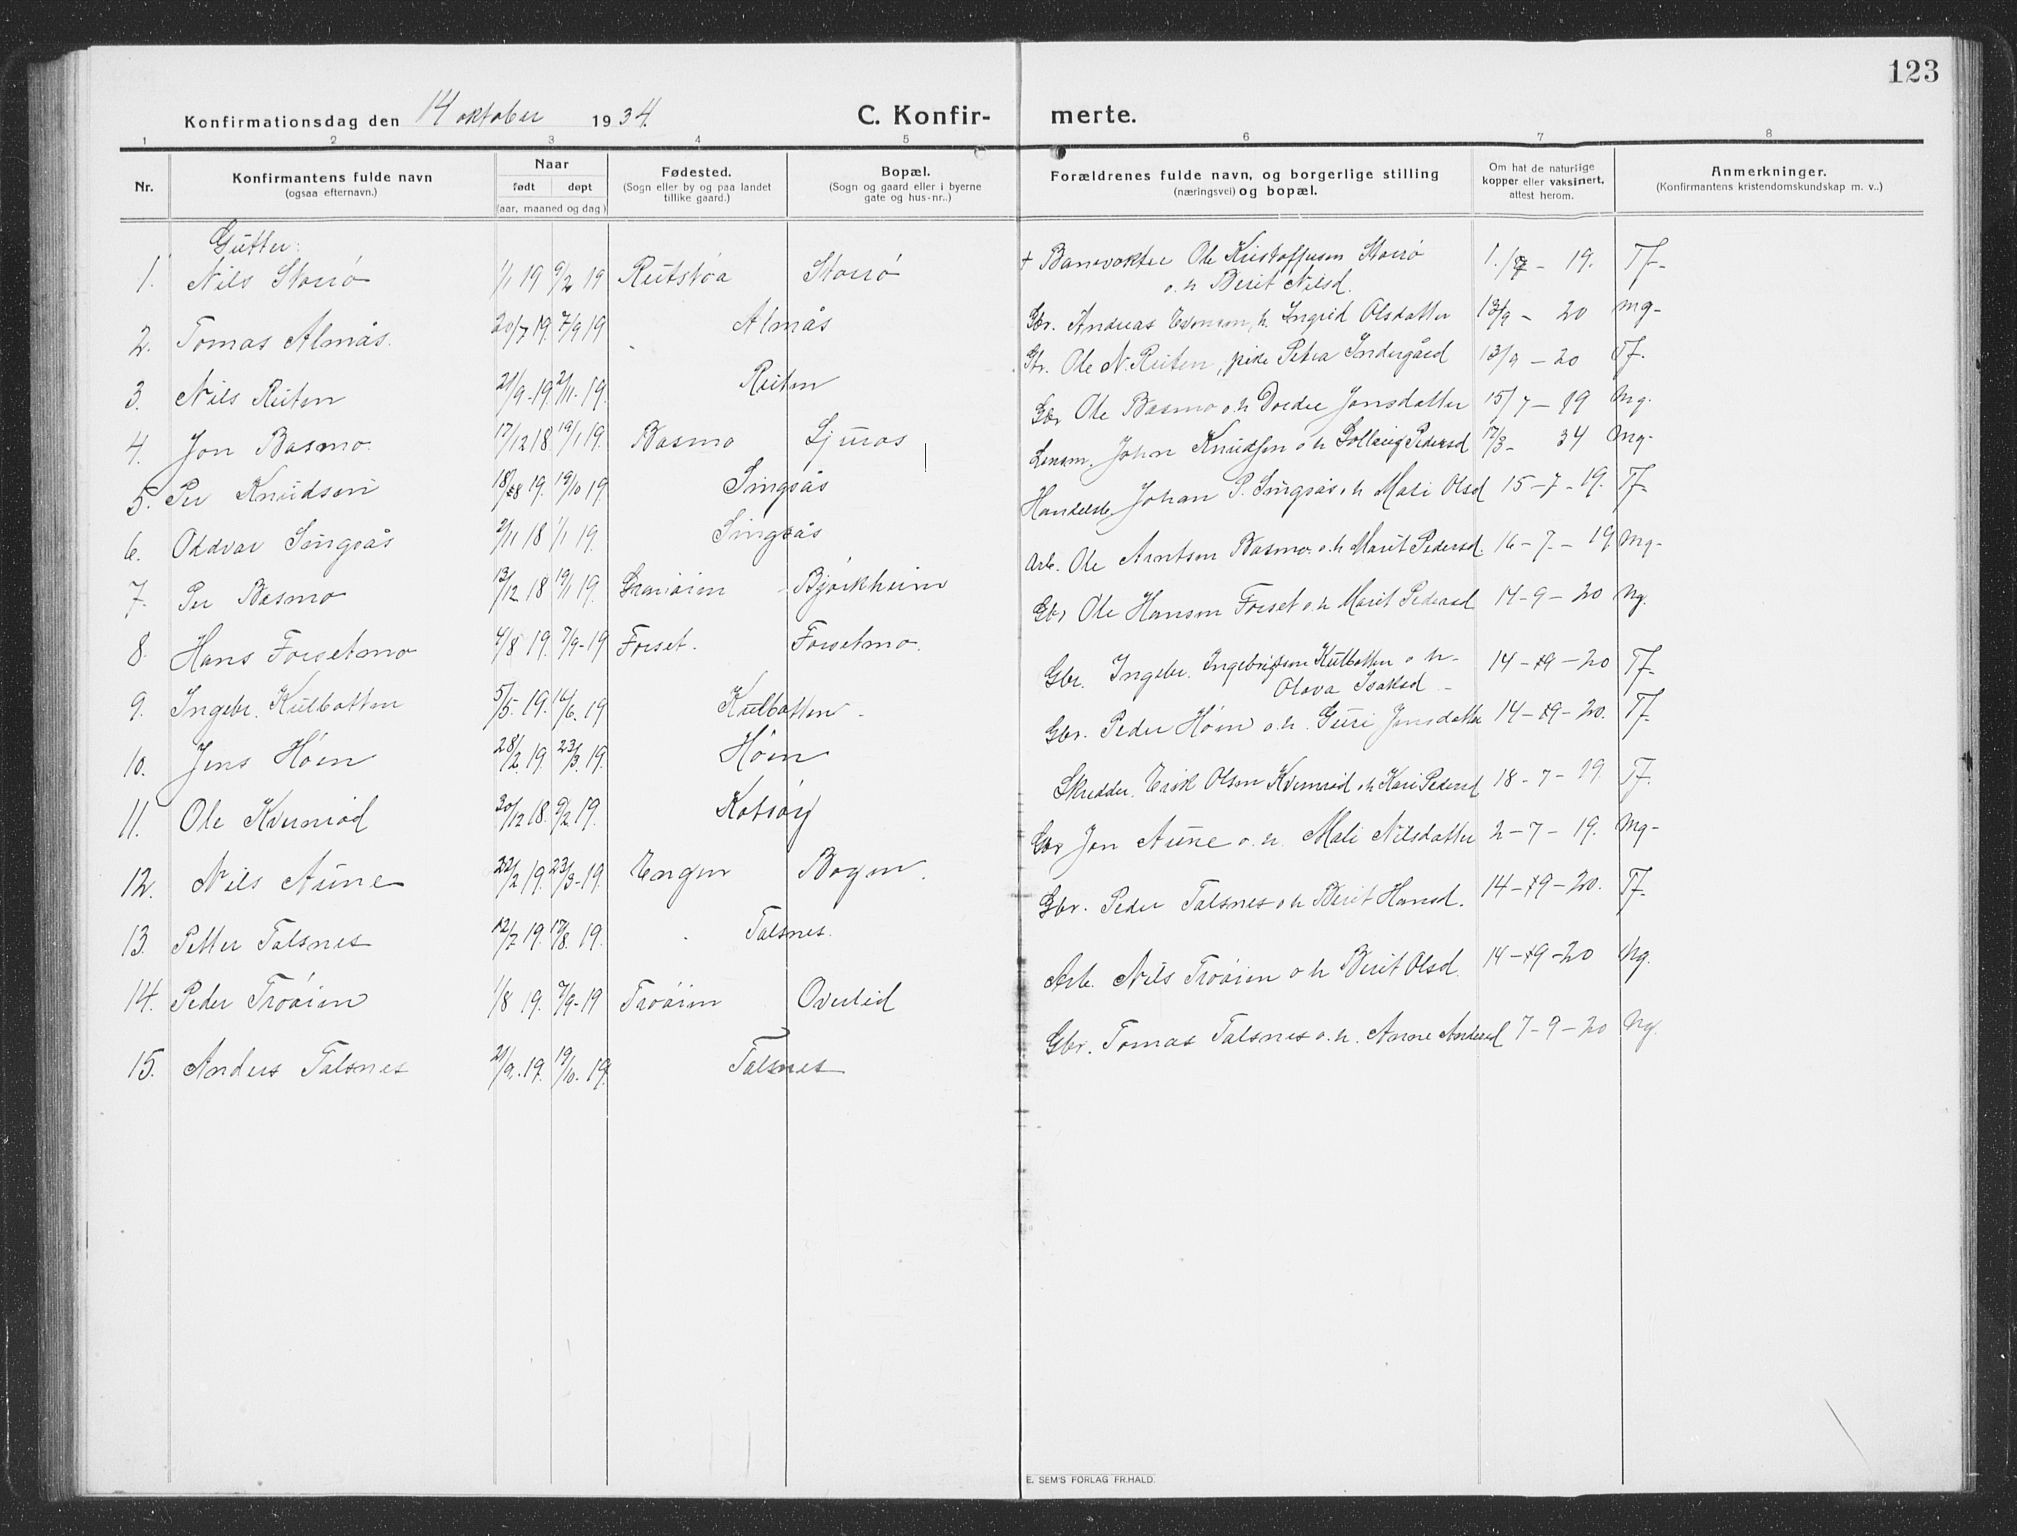 123
Konfirmationsdag den 14 oktober 1934. C. Konfir- merte.
1 2 3 4 5 6 7 8
Nr. Konfirmantens fulde navn (ogsaa efternavn.) Naar født døpt (aar, maaned og dag) Fødested. (Sogn eller by og paa landet tillike gaard.) Bopæl. (Sogn og gaard eller i byerne gate og hus-nr.) Forældrenes fulde navn, og borgerlige stilling (næringsvei) og bopæl. Om hat de naturlige kopper eller vaksinert, attest herom. Anmerkninger. (Konfirmantens kristendomskundskap m. v..)
Gutter:
1. Nils Storrø 1/1 19 9/2 19 Rutstøa Storrø + Banevokter Ole Kristoffersen Storrø o. h Berit Nilsd. 1./7 - 19. Tf-
2. Tomas Almås. 20/7 19. 7/9 19 Almås Gbr. Andreas Evensen, h. Ingrid Olsdatter 13/9 - 20 mg-
3. Nils Ruten 21/9-19. 2/11-19. Ruten Gbr. Ole N. Ruten, pike Petra Indergård 13/9 - 20 Tf.
4. Jon Basmo. 17/12 18 19/1 19. Basmo Ljuros Gbr Ole Basmo o. h Dordie Jonsdatter 15/7 - 19 Mg.
5. Per Knudsen 18/8 19. 19/10 19 Singsås Lensm. John Knudsen o h Solbeig Pedersd 17/3- 34 Mg-
6. Oddvar Singsås 2/11 18 1/1 19. Singsås Handelsb. Johan P. Singsås o h Mali Olsd 15-7-19. Tf-
7. Per Basmo 13/12 18 19/1 19. Granøien Bjørkheim Arb. Ole Arntsen Basmo. o. h Marit Pedersd. 16-7.-19 Mg-
8. Hans Forsetmo 4/8 19. 7/9-19 Forset. Forsetmo. Gbr Ole Hansen Forset o. h Marit Pedersd 14-9-20 Ng.
9. Ingebr. Kulbotten 5/5. 19. 16/6. 19 Kulbotten - Gbr. Ingebr. Ingebrigtsen Kulbotten o h- Olava Isaksd - 14-9-20 Tf-
10. Jens Høen 28/2. 19. 23/3. 19. Høen Gbr. Peder Høen o. h. Guri Jensdatter 14-9-20. Tf-
11. Ole Kvernrød 30/12 18. 9/2 19. Kotsøy Skredder. Erik Olsen Kvernrød o h Kari Pedersd 18-7-19. Tf-
12. Nils Aune 22/2 19. 23/3-19. Engen Bogen. Gbr Jon Aune o. h. Mali Nilsdatter 2-7-19. Mg-
13. Petter Talsnes 12/7 19. 17/8. 19. Talsnes. Gbr. Peder Talsnes o h Berit Hansd. 14-9-20. Tf-
14. Peder Trøøien 1/8 19. 7/9-19 Trøøien Overlid Arb. Nils Trøøien o h Berit Olsd. 14-9-20 Ng.
15. Anders Talsnes 21/9-19. 19/10-19. Talsnes Gbr. Tomas Talsnes o. h. Anne Andersd 7-9-20 Ng.
E. SEM'S FORLAG FR.HALD.